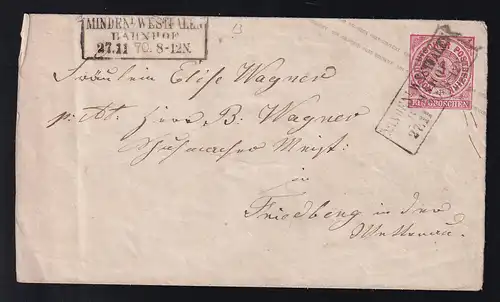 MINDEN-WESTFALEN
BAHNHOF
27.11 70. 8-12N.
Fräulein Elise Wagner
p. Ad. Herr B. Wagner
Schuhmacher Meist.
in
Friedberg in der
Wetterau.
NORDDEUTSCHER POSTBEZIRK
EIN GROSCHEN
MINDEN
27.11